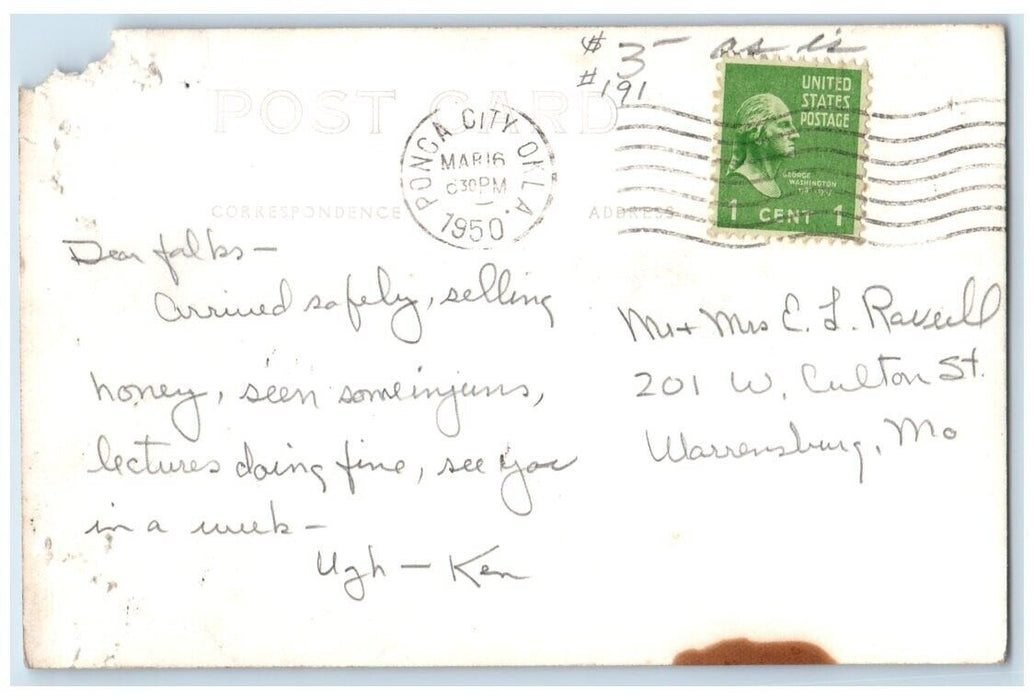 $3- as is
#191
POST CARD
PONCA CITY OKLA.
MAR 16
630PM
1950
UNITED
STATES
POSTAGE
GEORGE
WASHINGTON
1 CENT 1
CORRESPONDENCE
ADDRESS
Dear folks-
Arrived safely, selling
honey, seen some injuns,
lectures doing fine, see you
in a week-
Ugh - Ken
Mr + Mrs E. L. Raveill
201 W. Culton St.
Warrensburg, Mo